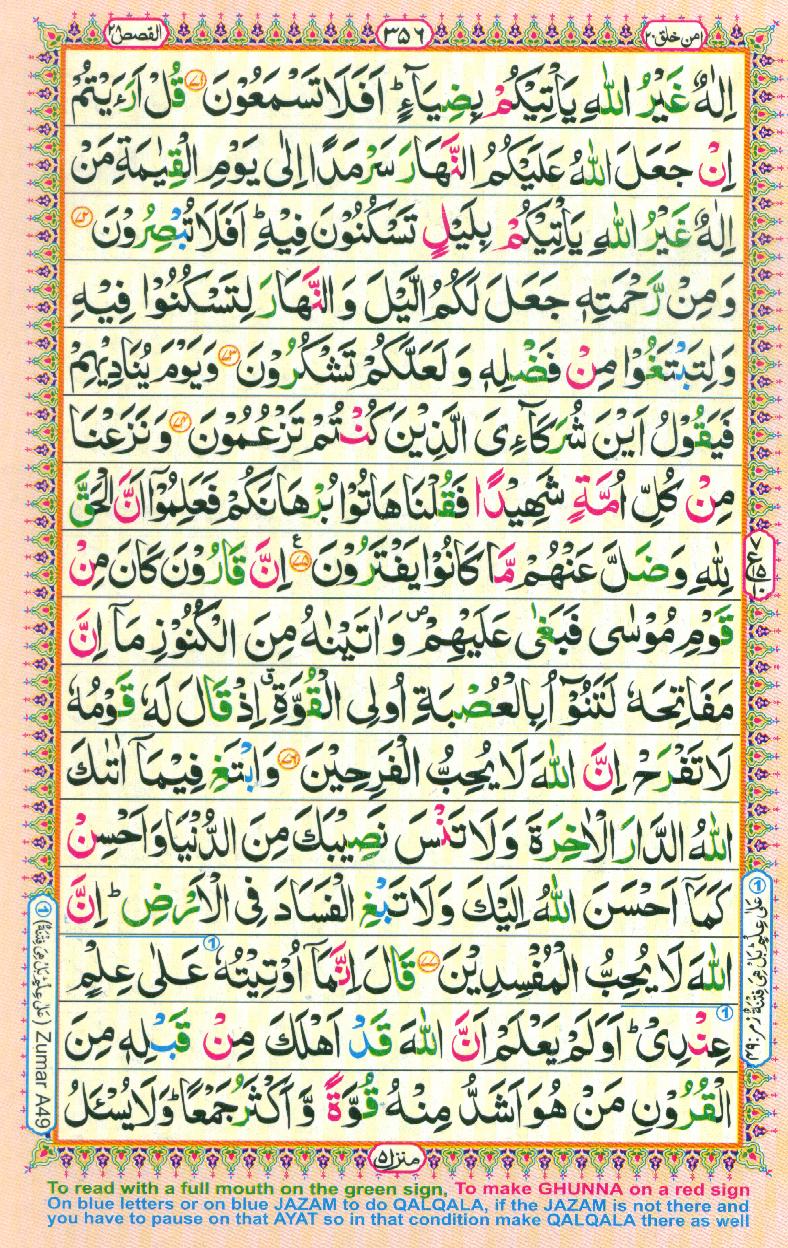 امن خلق ٢٠
٣٥٦
القصص ٢٨
اِلٰهٌ غَيْرُ اللّٰهِ يَاْتِيْكُمْ بِضِيَآءٍ ؕ اَفَلَا تَسْمَعُوْنَ ﴿۷۱﴾ قُلْ اَرَءَيْتُمْ
اِنْ جَعَلَ اللّٰهُ عَلَيْكُمُ النَّهَارَ سَرْمَدًا اِلٰى يَوْمِ الْقِيٰمَةِ مَنْ
اِلٰهٌ غَيْرُ اللّٰهِ يَاْتِيْكُمْ بِلَيْلٍ تَسْكُنُوْنَ فِيْهِ ؕ اَفَلَا تُبْصِرُوْنَ ﴿۷۲﴾
وَمِنْ رَّحْمَتِهٖ جَعَلَ لَكُمُ الَّيْلَ وَالنَّهَارَ لِتَسْكُنُوْا فِيْهِ
وَلِتَبْتَغُوْا مِنْ فَضْلِهٖ وَلَعَلَّكُمْ تَشْكُرُوْنَ ﴿۷۳﴾ وَيَوْمَ يُنَادِيْهِمْ
فَيَقُوْلُ اَيْنَ شُرَكَآءِىَ الَّذِيْنَ كُنْتُمْ تَزْعُمُوْنَ ﴿۷۴﴾ وَنَزَعْنَا
مِنْ كُلِّ اُمَّةٍ شَهِيْدًا فَقُلْنَا هَاتُوْا بُرْهَانَكُمْ فَعَلِمُوْٓا اَنَّ الْحَقَّ
لِلّٰهِ وَضَلَّ عَنْهُمْ مَّا كَانُوْا يَفْتَرُوْنَ ﴿۷۵﴾ ع اِنَّ قَارُوْنَ كَانَ مِنْ
قَوْمِ مُوْسٰى فَبَغٰى عَلَيْهِمْ ۖ وَاٰتَيْنٰهُ مِنَ الْكُنُوْزِ مَآ اِنَّ
مَفَاتِحَهٗ لَتَنُوْٓاُ بِالْعُصْبَةِ اُولِى الْقُوَّةِ ۗ اِذْ قَالَ لَهٗ قَوْمُهٗ
لَا تَفْرَحْ اِنَّ اللّٰهَ لَا يُحِبُّ الْفَرِحِيْنَ ﴿۷۶﴾ وَابْتَغِ فِيْمَآ اٰتٰىكَ
اللّٰهُ الدَّارَ الْاٰخِرَةَ وَلَا تَنْسَ نَصِيْبَكَ مِنَ الدُّنْيَا وَاَحْسِنْ
كَمَآ اَحْسَنَ اللّٰهُ اِلَيْكَ وَلَا تَبْغِ الْفَسَادَ فِى الْاَرْضِ ؕ اِنَّ
اللّٰهَ لَا يُحِبُّ الْمُفْسِدِيْنَ ﴿۷۷﴾ قَالَ اِنَّمَآ اُوْتِيْتُهٗ ① عَلٰى عِلْمٍ
عِنْدِىْ ؕ ① اَوَلَمْ يَعْلَمْ اَنَّ اللّٰهَ قَدْ اَهْلَكَ مِنْ قَبْلِهٖ مِنَ
الْقُرُوْنِ مَنْ هُوَ اَشَدُّ مِنْهُ قُوَّةً وَّاَكْثَرُ جَمْعًا ؕ وَلَا يُسْـَٔلُ
منزل ٥
① عَلٰى عِلْمٍ ؕ بَلْ هِىَ فِتْنَةٌ زمر: ٤٩
① (عَلٰى عِلْمٍ ؕ بَلْ هِىَ فِتْنَةٌ) Zumar A49
To read with a full mouth on the green sign, To make GHUNNA on a red sign
On blue letters or on blue JAZAM to do QALQALA, if the JAZAM is not there and
you have to pause on that AYAT so in that condition make QALQALA there as well